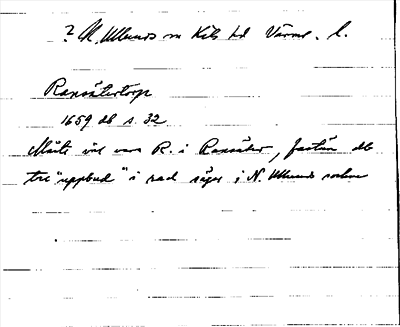 ? N. Ulleruds sn Kils hd Värml. l.
Ransätertorp
1659 db s. 32
Måste väl vara R. i Ransäter, fastän db
tre "uppbud" i rad säger i N. Ulleruds socken